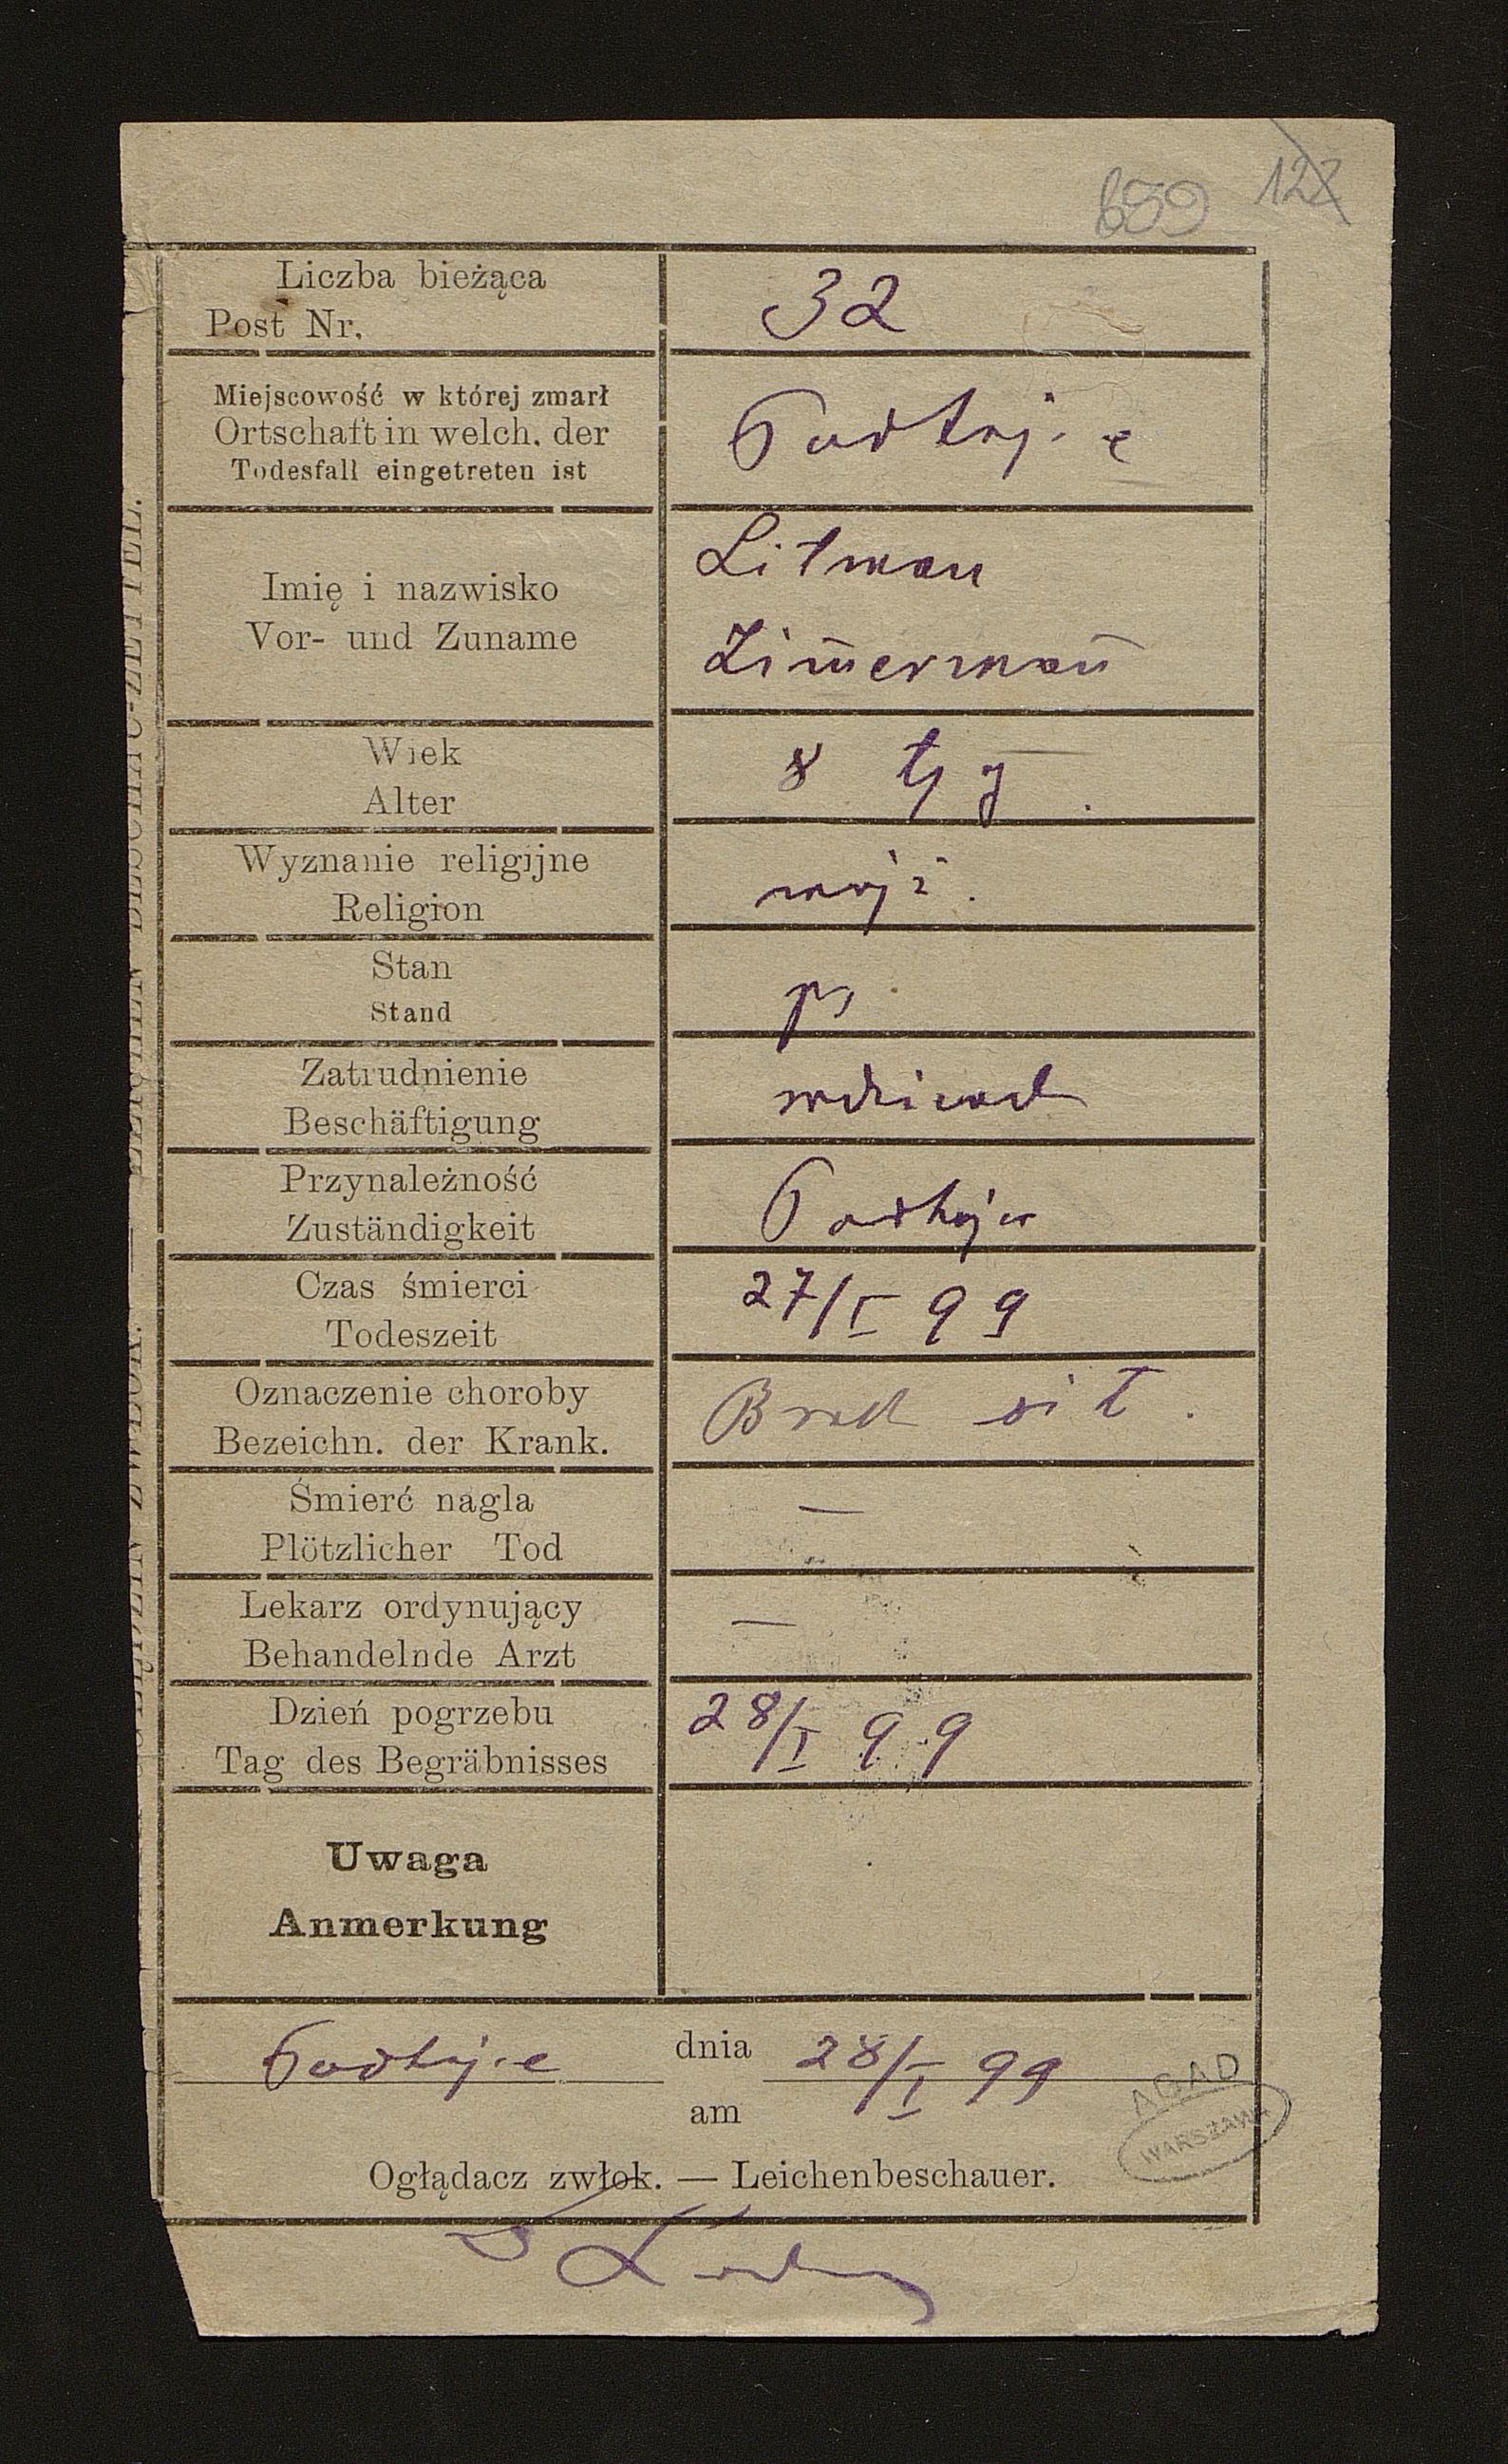 659 122
Liczba bieżąca
Post Nr.
32
Miejscowość w której zmarł
Ortschaft in welch. der
Todesfall eingetreten ist
Podhajce
Imię i nazwisko
Vor- und Zuname
Litman
Zim̄erman̄
Wiek
Alter
8 tyg.
Wyznanie religijne
Religion
mojż.
Stan
Stand
Zatrudnienie
Beschäftigung
Przynależność
Zuständigkeit
Podhajce
Czas śmierci
Todeszeit
27/I 99
Oznaczenie choroby
Bezeichn. der Krank.
Brak sił.
Śmierć nagla
Plötzlicher Tod
—
Lekarz ordynujący
Behandelnde Arzt
—
Dzień pogrzebu
Tag des Begräbnisses
28/I 99
Uwaga
Anmerkung
Podhajce dnia 28/I 99
am
Oglądacz zwłok. — Leichenbeschauer.
AGAD
WARSZAWA